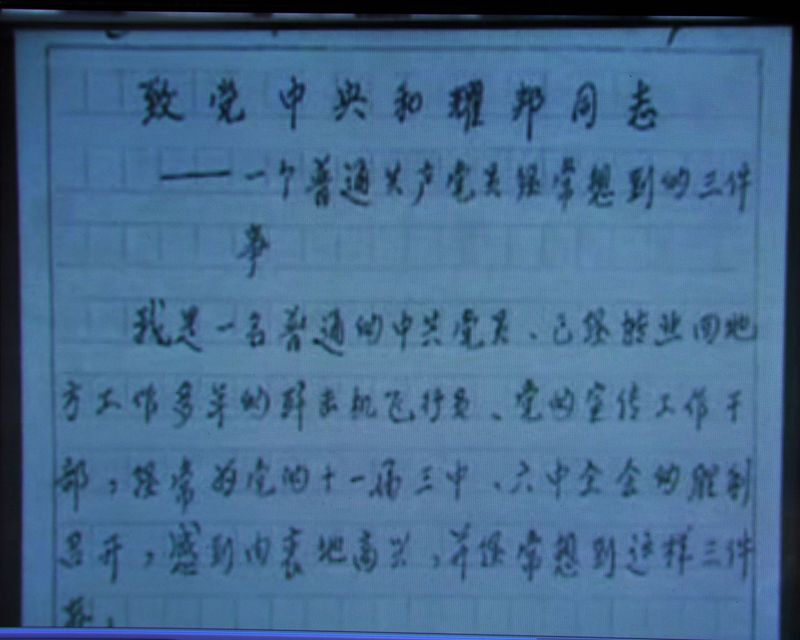 致党中央和耀邦同志
——一个普通共产党员经常想到的三件
事
我是一名普通的中共党员、已经转业回地
方工作多年的歼击机飞行员、党的宣传工作干
部，经常为党的十一届三中、六中全会的胜利
召开，感到由衷地高兴，并经常想到这样三件
事：